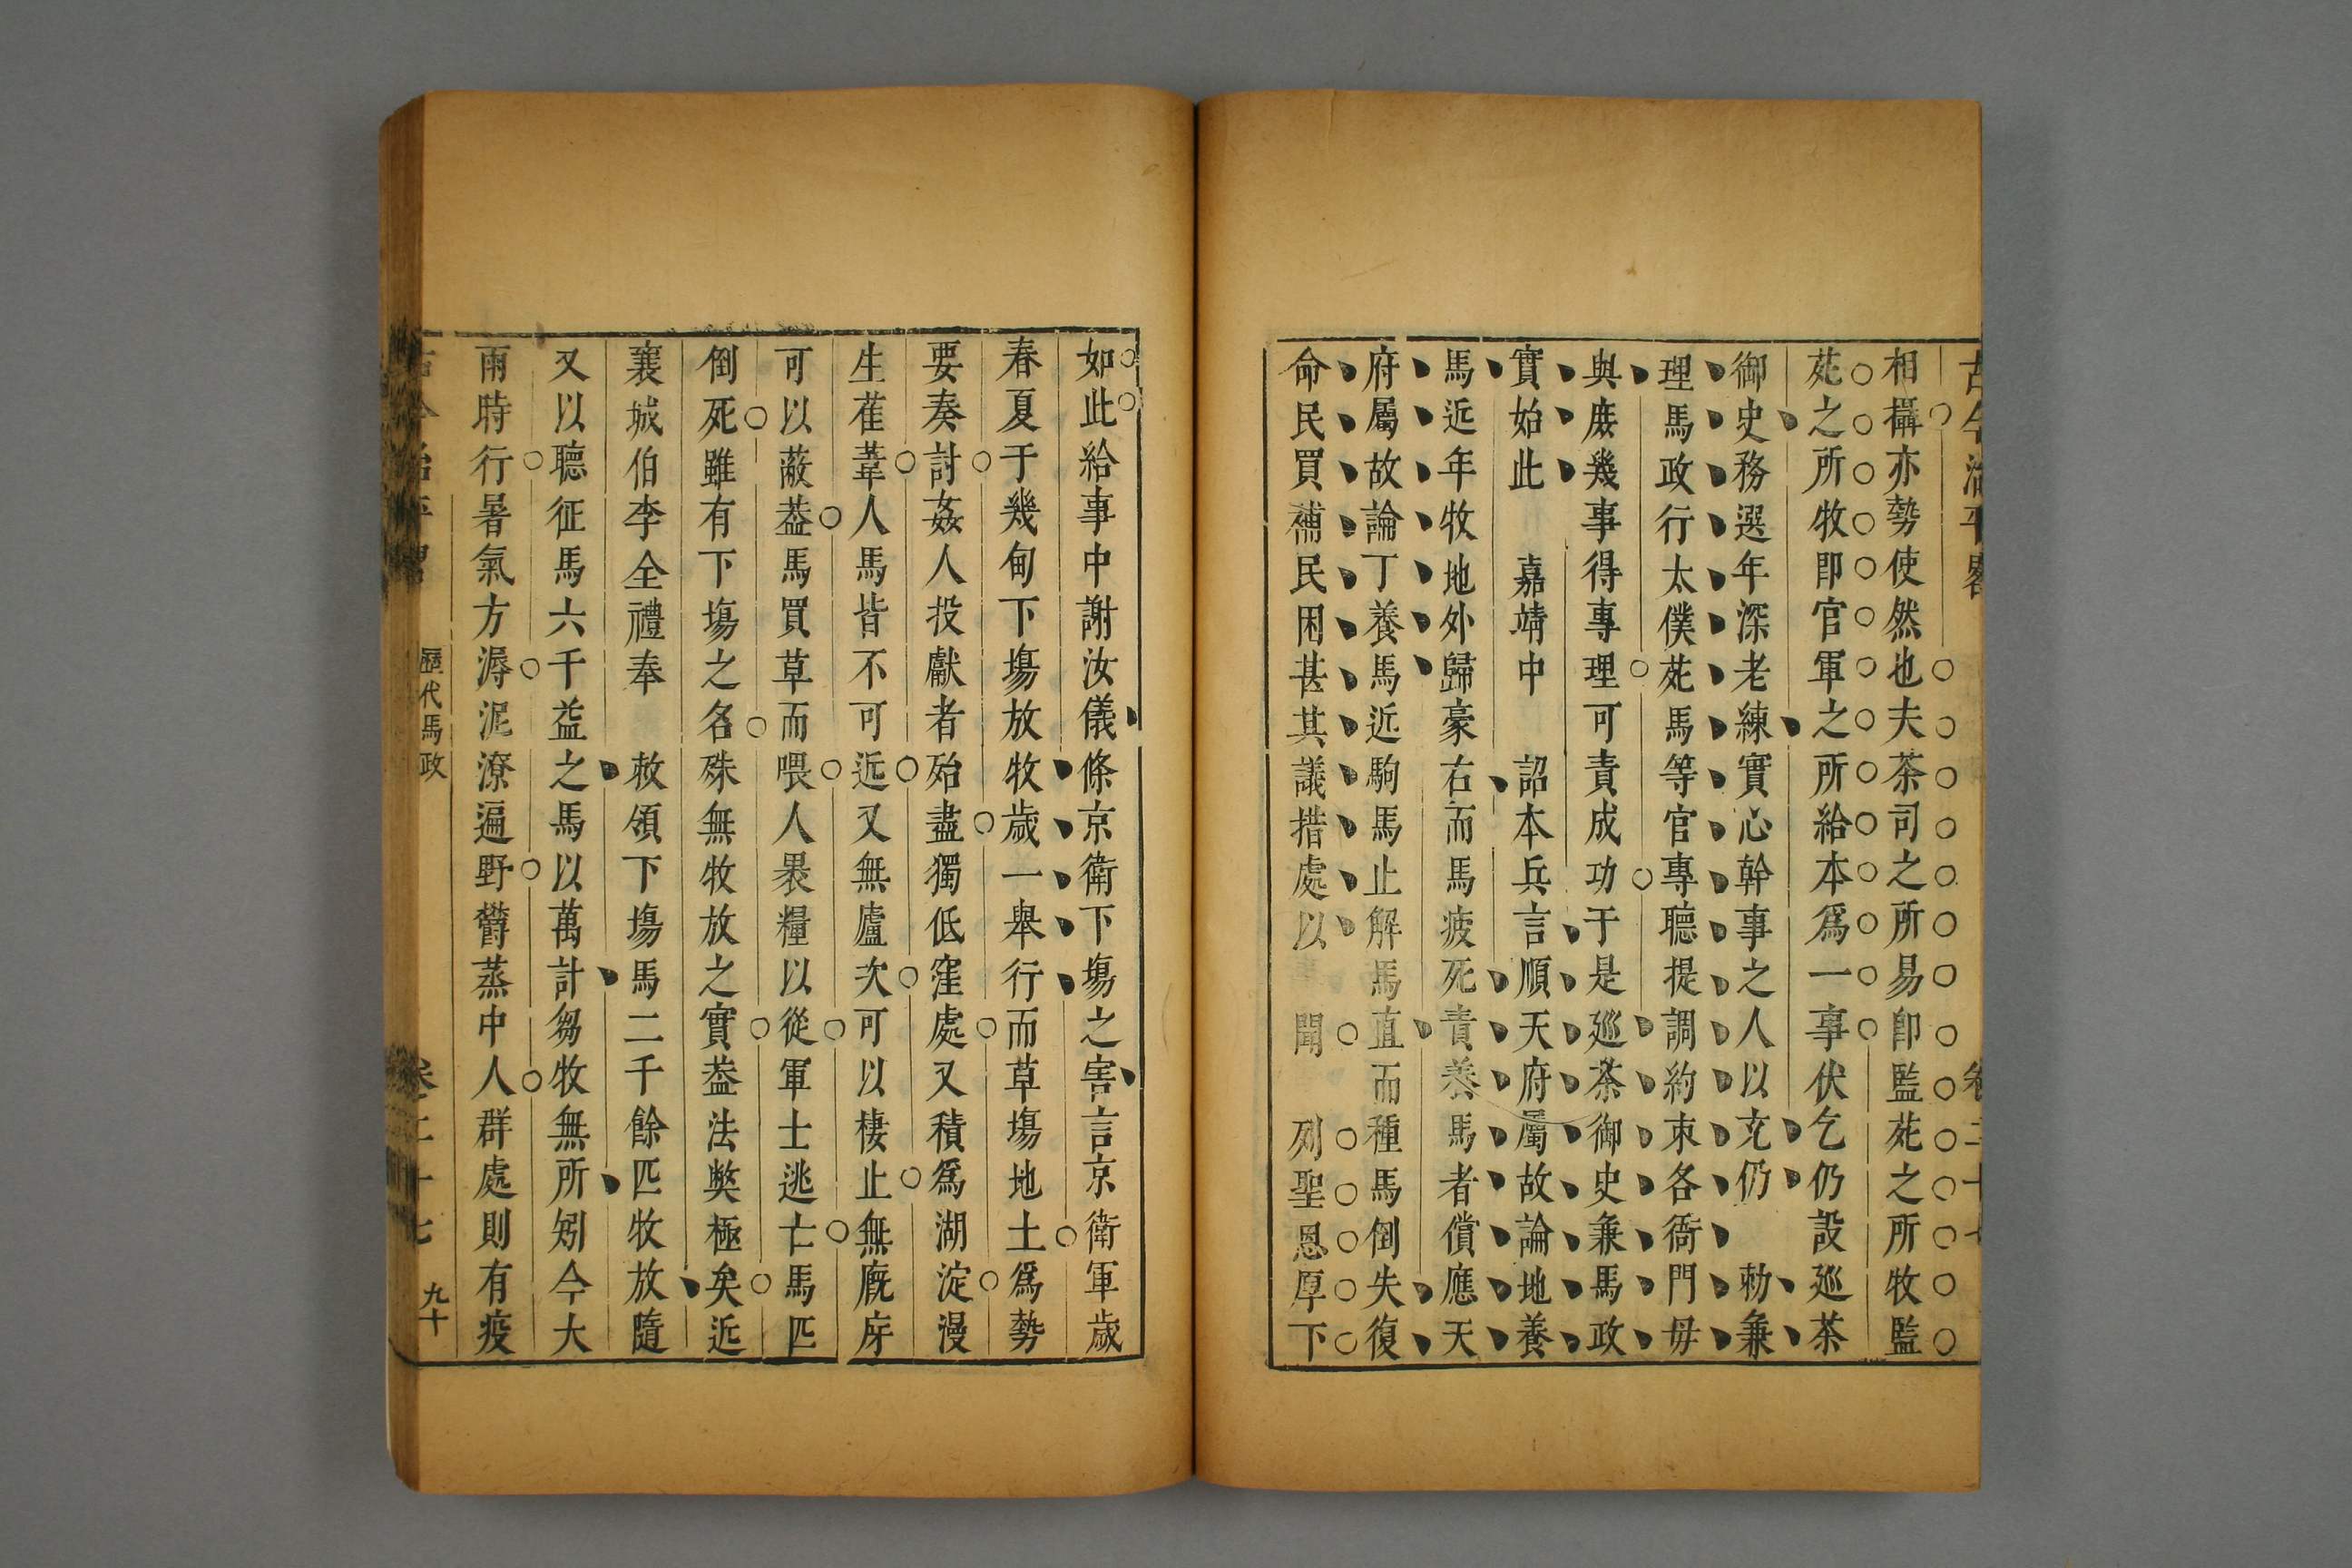 古今治平畧 卷二十七
相攝亦勢使然也夫茶司之所易卽監苑之所牧監
苑之所牧卽官軍之所給本爲一事伏乞仍設廵茶
御史務選年深老練實心幹事之人以充仍 勑兼
理馬政行太僕苑馬等官專聽提調約束各衙門毋
與庻幾事得專理可責成功于是廵茶御史兼馬政
實始此 嘉靖中 詔本兵言順天府屬故論地養
馬近年牧地外歸豪右而馬疲死責養馬者償應天
府屬故論丁養馬近駒馬止解馬直而種馬倒失復
命民買補民困甚其議措處以聞 列聖恩厚下
如此給事中謝汝儀條京衛下塲之害言京衛軍歲
春夏于幾甸下塲放牧歲一舉行而草塲地土爲勢
要奏討姦人投獻者殆盡獨低窪處又積爲湖淀漫
生萑葦人馬皆不可近又無廬次可以棲止無廐庌
可以蔽葢馬買草而喂人褁糧以從軍士逃亡馬匹
倒死雖有下塲之名殊無牧放之實葢法獘極矣近
襄城伯李全禮奉 敕領下塲馬二千餘匹牧放隨
又以聽征馬六千益之馬以萬計芻牧無所矧今大
雨時行暑氣方溽泥潦遍野欝蒸中人群處則有疫
古今治平畧 歷代馬政 卷二十七 九十